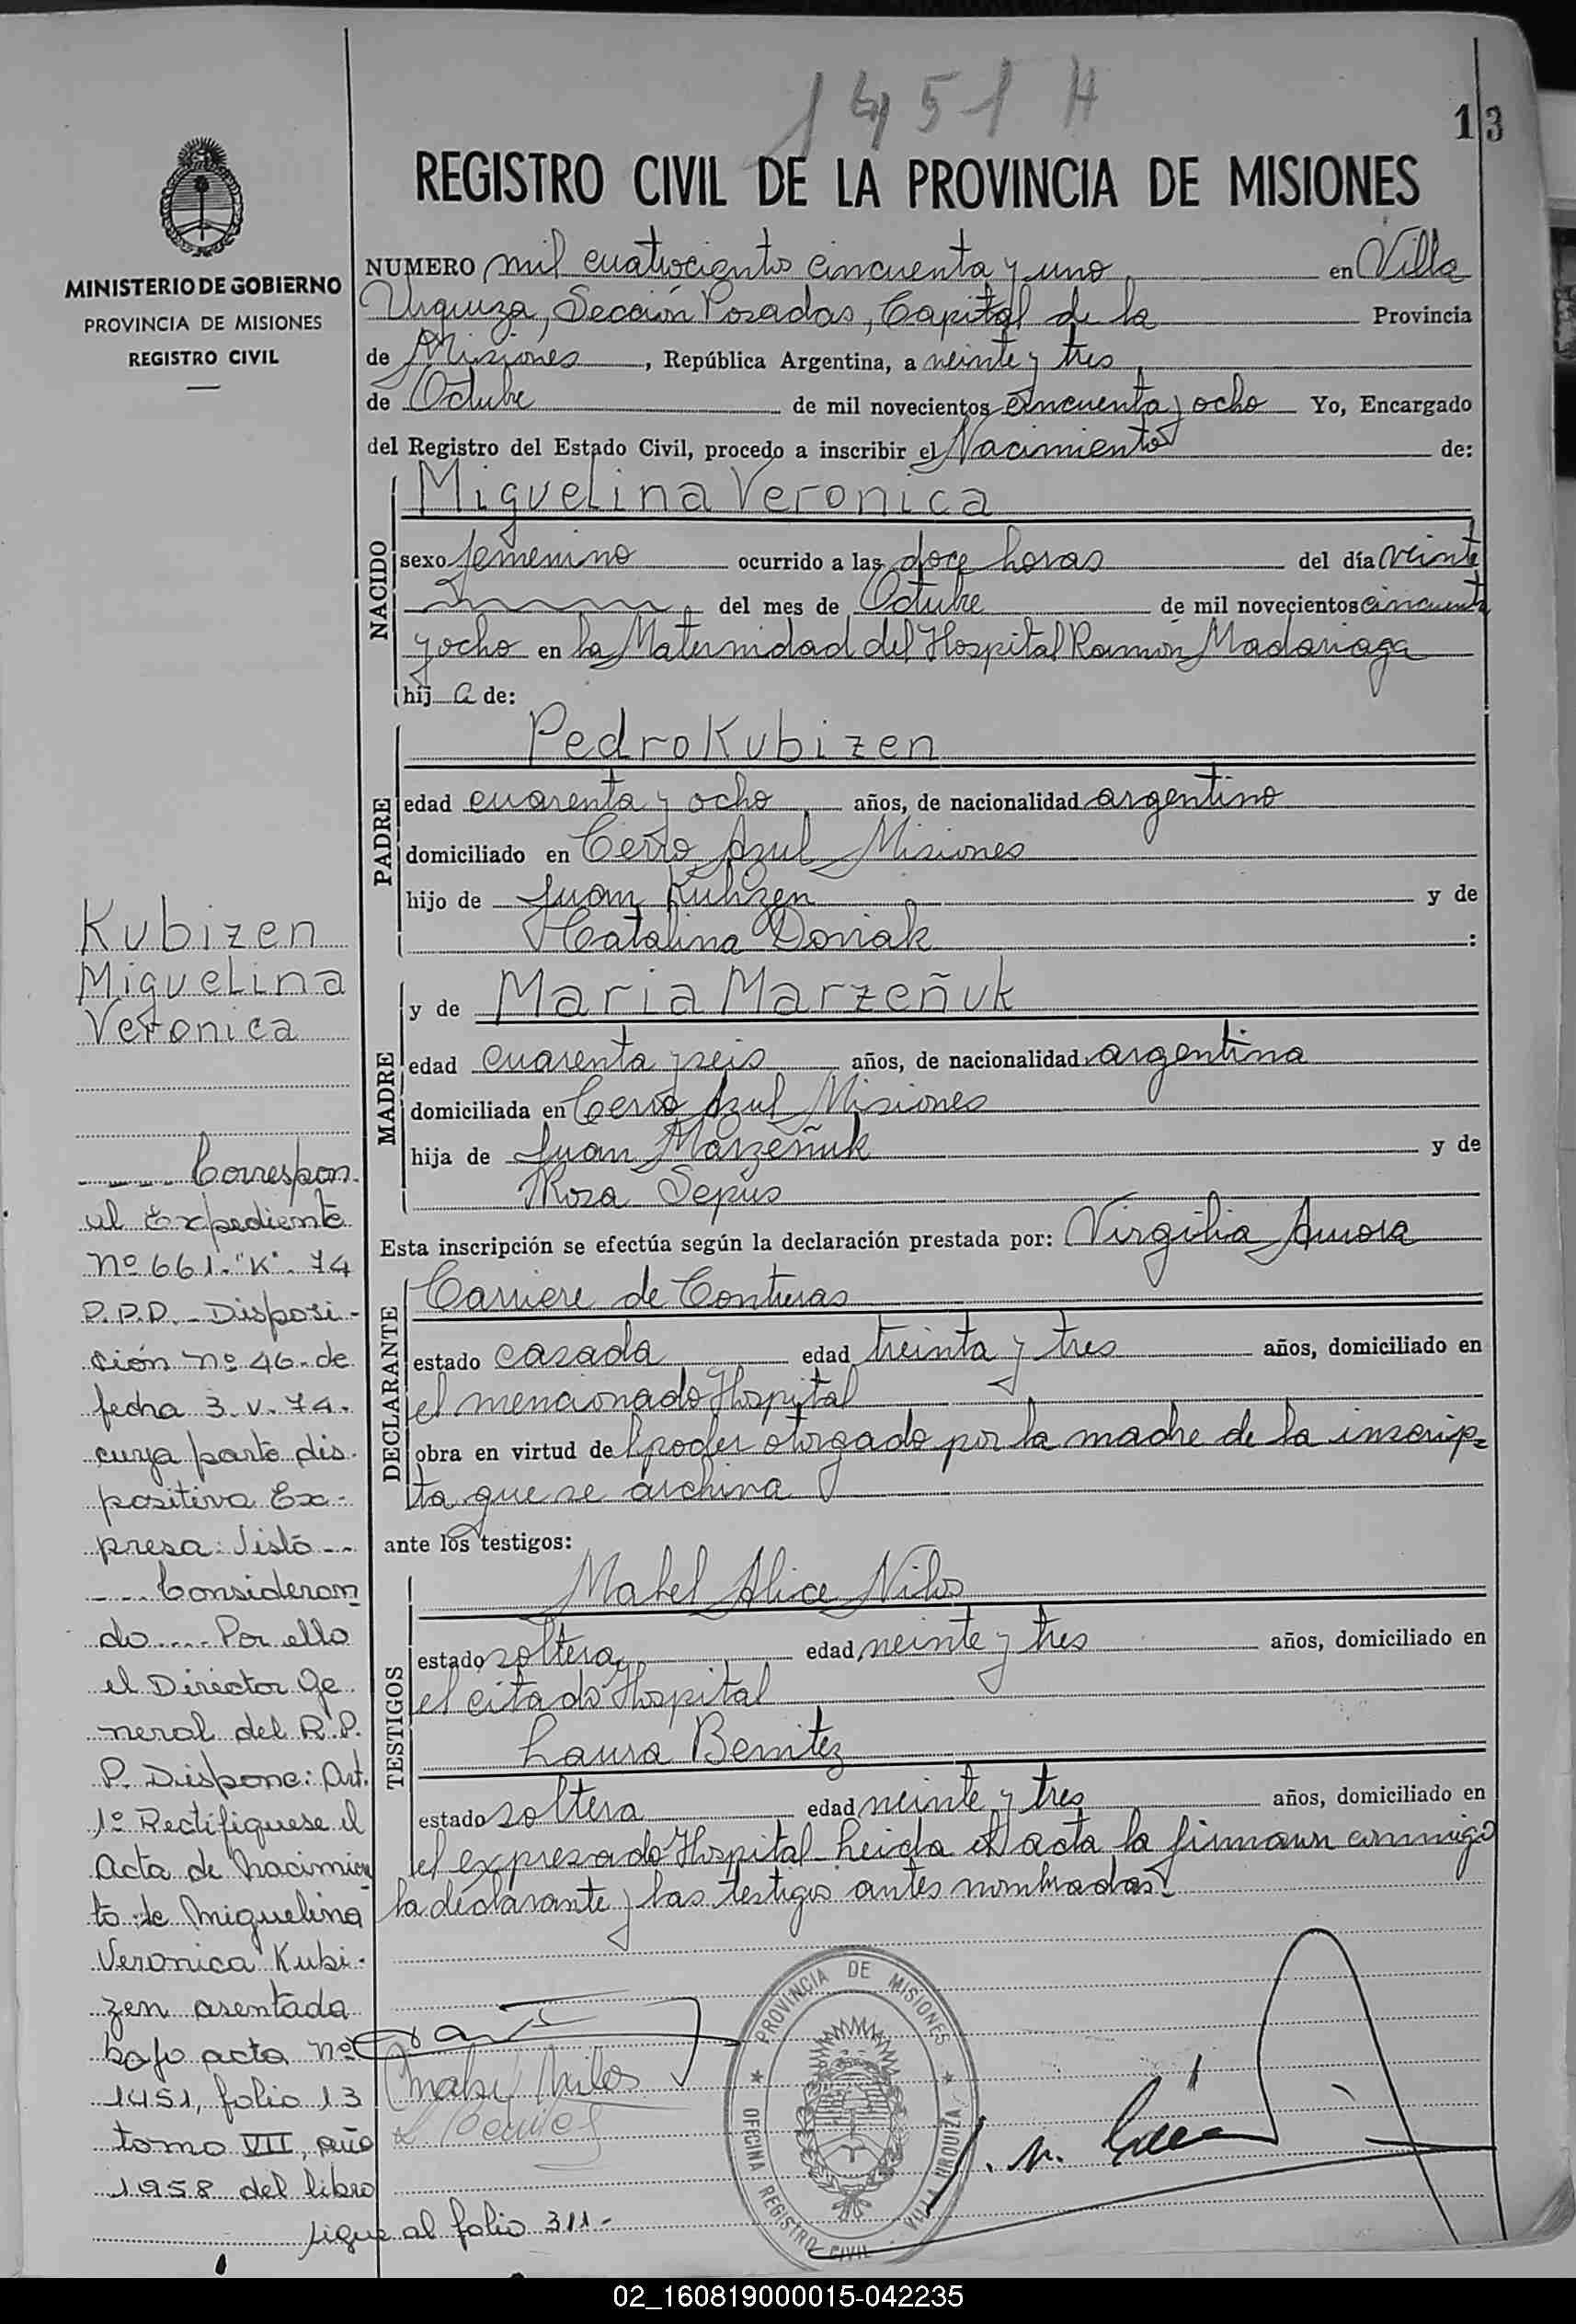 1451 H
13
REGISTRO CIVIL DE LA PROVINCIA DE MISIONES
MINISTERIO DE GOBIERNO
PROVINCIA DE MISIONES
REGISTRO CIVIL
NUMERO mil cuatrocientos cincuenta y uno en Villa
Urquiza, Sección Posadas, Capital de la Provincia
de Misiones, República Argentina, a veinte y tres
de Octubre de mil novecientos cincuenta y ocho Yo, Encargado
del Registro del Estado Civil, procedo a inscribir el Nacimiento de:
NACIDO
Miguelina Veronica
sexo femenino ocurrido a las doce horas del día veinte
del mes de Octubre de mil novecientos cincuenta
y ocho en la Maternidad del Hospital Ramón Madariaga
hij a de:
PADRE
Pedro Kubizen
edad cuarenta y ocho años, de nacionalidad argentino
domiciliado en Cerro Azul Misiones
hijo de Juan Kubizen y de
Catalina Doniak :
MADRE
y de Maria Marzeñuk
edad cuarenta y seis años, de nacionalidad argentina
domiciliada en Cerro Azul Misiones
hija de Juan Marzeñuk y de
Rosa Sepus
Esta inscripción se efectúa según la declaración prestada por: Virgilia Aurora
DECLARANTE
Carriere de Contreras
estado casada edad treinta y tres años, domiciliado en
el mencionado Hospital
obra en virtud de poder otorgado por la madre de la inscrip-
ta que se archiva
ante los testigos:
TESTIGOS
Mabel Alice Nilos
estado soltera edad veinte y tres años, domiciliado en
el citado Hospital
Laura Benitez
estado soltera edad veinte y tres años, domiciliado en
el expresado Hospital. Leida el acta la firmaron conmigo
la declarante y las testigos antes nombradas.
Kubizen
Miguelina
Veronica
---- Correspon.
al Expediente
Nº 661. "K". 74
P.P.D. - Disposi-
ción nº 46. de
fecha 3. V. 74.
cuya parte dis.
positiva Ex-
presa: Visto --
---- Consideran
do .... Por ello
el Director Ge
neral del R.P.
P. Dispone: Art.
1º Rectifiquese el
acta de nacimien
to de Miguelina
Veronica Kubi-
zen asentada
bajo acta nº
1451, folio 13
tomo VII, año
1958 del libro
sigue al folio 311.-
Mabel Nilos
L Benitez
PROVINCIA DE MISIONES
OFICINA REGISTRO CIVIL VILLA URQUIZA
02_160819000015-042235